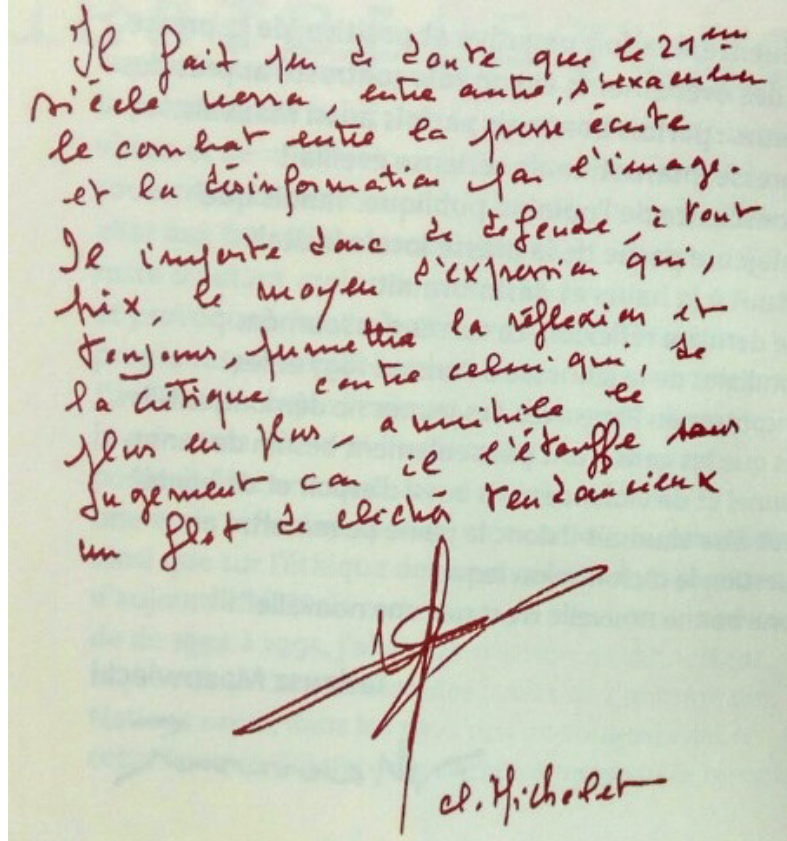 Il fait peu de doute que le 21ème
siècle verra, entre autre, s'exacerber
le combat entre la presse écrite
et la désinformation par l'image.
Il importe donc de défendre, à tout
prix le moyen d'expression qui,
toujours, permettra la réflexion et
la critique contre celui qui, de
plus en plus, annihile le
jugement car il l'étouffe sous
un flot de clichés tendancieux
cl. Michelet